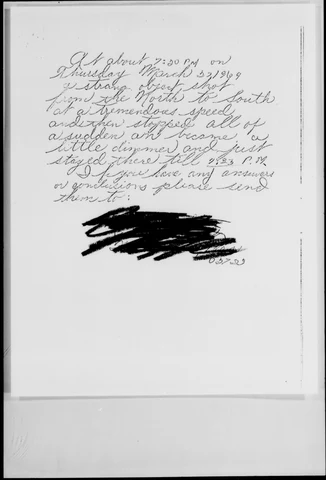 At about 7:20 PM on
Thursday March 22/1969
a strang object shot
from the North to South
at a tremendous speed
and then stopped all of
a sudden an become a
little dimmer and just
stayed there till 7:33 P.M.
If you have any answers
or conclusions please send
them to: